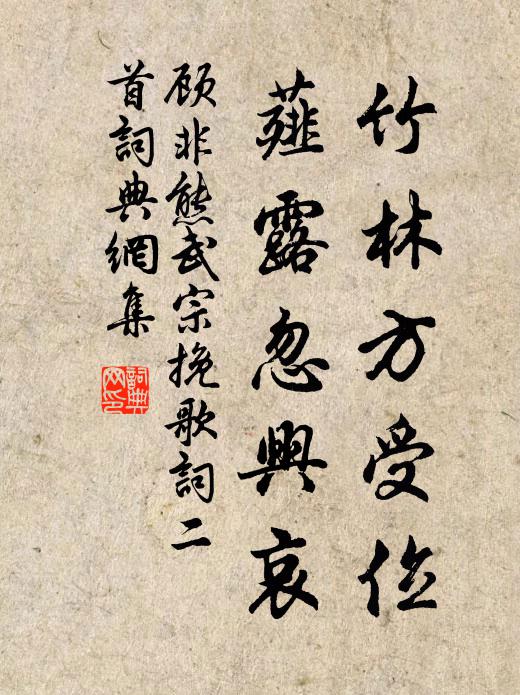 竹林方受位
薤露忽興哀
顾非熊武宗挽歌詞二
首詞典網集
詞典
网印